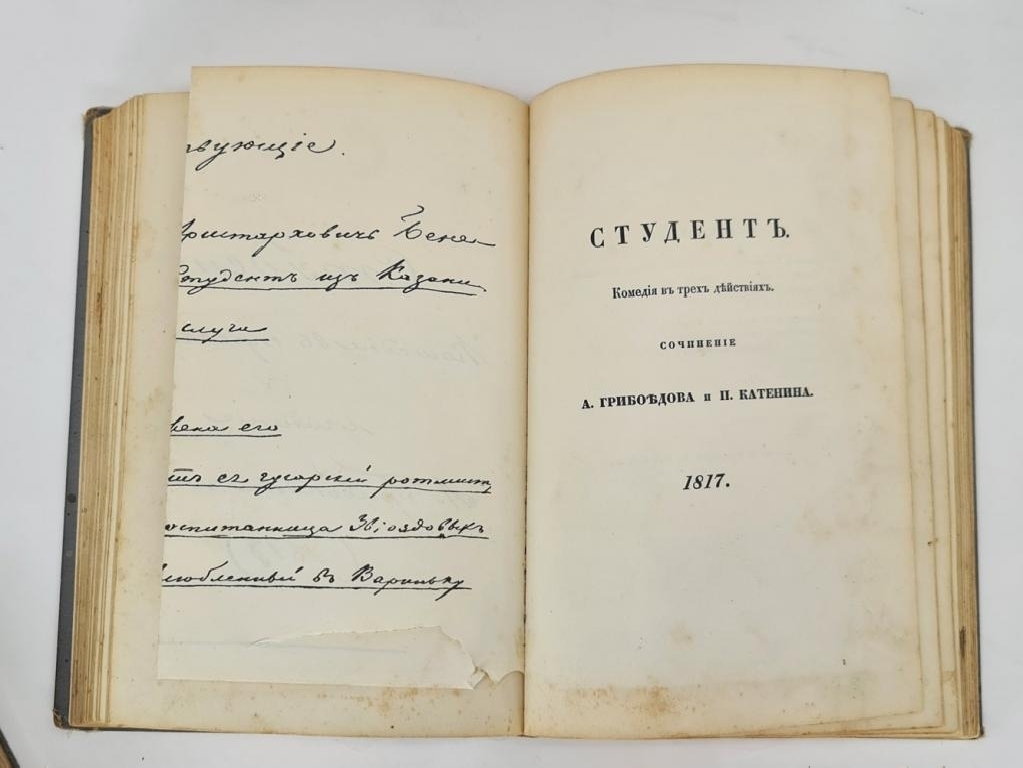 твующіе.
Аристарховичъ Бене-
Студентъ изъ Казани.
слуги
его
съ гусарскій ротмист
воспитанница Звіоздовыхъ
влюбленный въ Вариньку
СТУДЕНТЪ.
Комедія въ трехъ дѣйствіяхъ.
СОЧИНЕНІЕ
А. ГРИБОѢДОВА и П. КАТЕНИНА.
1817.